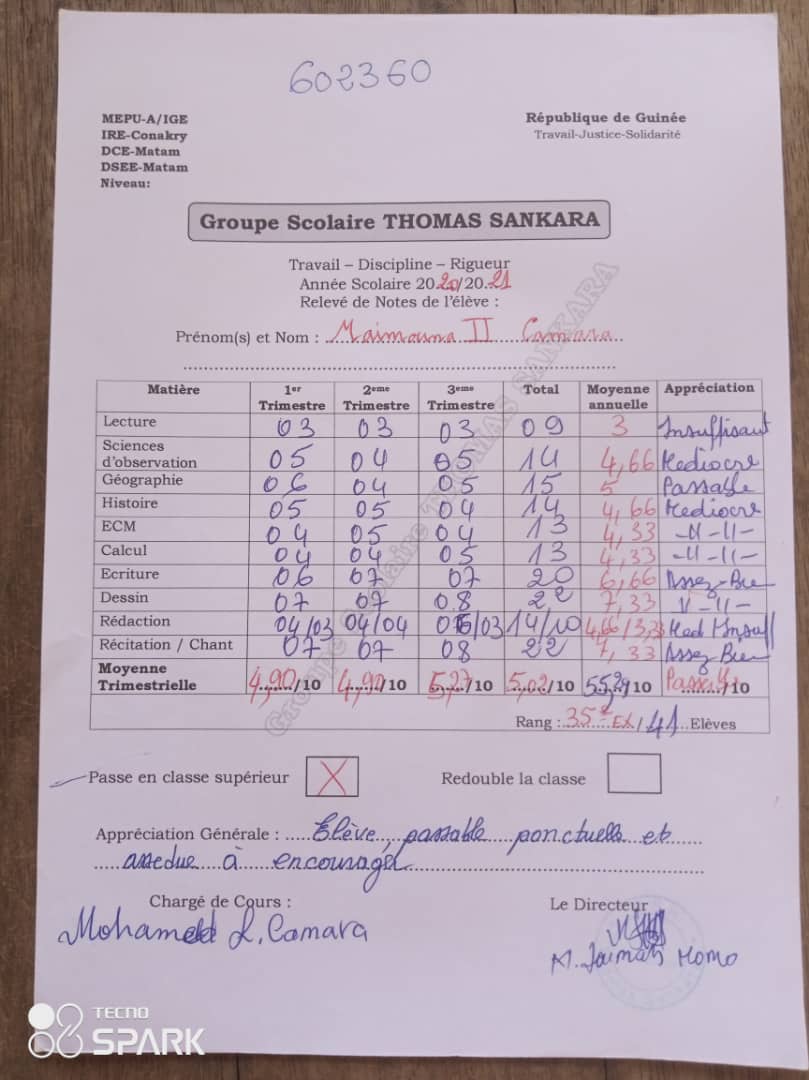 602360
MEPU-A/IGE
IRE-Conakry
DCE-Matam
DSEE-Matam
Niveau:
République de Guinée
Travail-Justice-Solidarité
Groupe Scolaire THOMAS SANKARA
Travail – Discipline – Rigueur
Année Scolaire 2020/20.21
Relevé de Notes de l'élève :
Prénom(s) et Nom : Maimouna II Camara
Matière 1er Trimestre 2eme Trimestre 3eme Trimestre Total Moyenne annuelle Appréciation
Lecture 03 03 03 09 3 Insuffisant
Sciences d'observation 05 04 05 14 4,66 Mediocre
Géographie 06 04 05 15 5 Passable
Histoire 05 05 04 14 4,66 Mediocre
ECM 04 05 04 13 4,33 -11-11-
Calcul 04 04 05 13 4,33 -11-11-
Ecriture 06 07 07 20 6,66 Assez-Bien
Dessin 07 07 08 22 7,33 11-11-
Rédaction 04/03 04/04 /03 14/10 4,66/3,33 Med Insuff
Récitation / Chant 07 07 08 22 7,33 Assez Bien
Moyenne Trimestrielle 4,90/10 4,90/10 5,27/10 5,02/10 /10 Passable/10
Rang : 35e Ex/41 Elèves
Passe en classe supérieur X Redouble la classe
Appréciation Générale : Elève, passable ponctuelle et
assedue à encourager
Chargé de Cours :
Le Directeur
Mohamed L. Camara
Momo
Groupe Scolaire THOMAS SANKARA
TECNO
SPARK